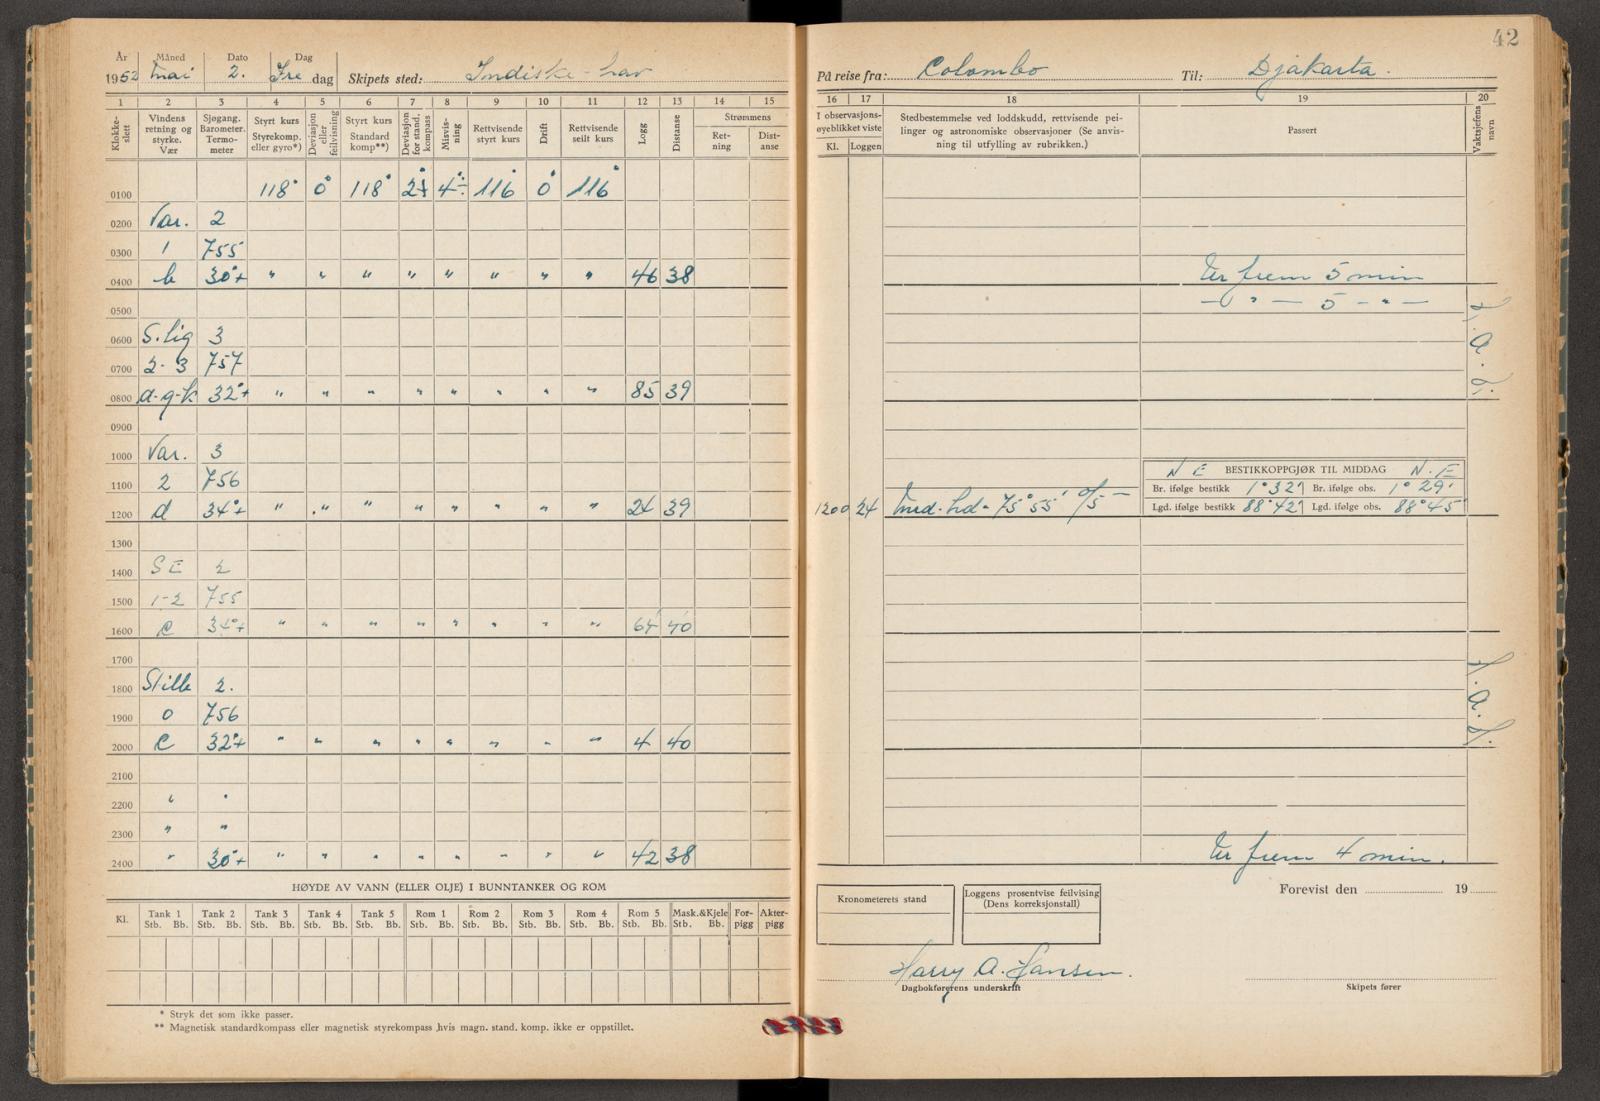 42
År Måned Dato Dag
1952 mai 2. Fre dag Skipets sted: Indiske-hav
1 2 3 4 5 6 7 8 9 10 11 12 13 14 15
Klokke-slett
Vindens retning og styrke. Vær
Sjøgang. Barometer. Termo-meter
Styrt kurs Styrekomp. eller gyro*)
Deviasjon eller feilvisning
Styrt kurs Standard komp**)
Deviasjon for stand. kompass
Misvis-ning
Rettvisende styrt kurs
Drift
Rettvisende seilt kurs
Logg
Distanse
Strømmens
Ret-ning
Dist-anse
0100 118° 0° 118° 2+ 4°÷ 116° 0° 116°
0200 Var. 2
0300 1 755
0400 b 30°+ " " " " " " " " 46 38
0500
0600 S.lig 3
0700 2-3 757
0800 d-q-k 32°+ " " " " " " " " 85 39
0900
1000 Var. 3
1100 2 756
1200 d 34°+ " " " " " " " " 24 39
1300
1400 SE 2
1500 1-2 755
1600 c 34°+ " " " " " " " " 64 40
1700
1800 Stille 2.
1900 0 756
2000 c 32°+ " " " " " " " " 4 40
2100
2200 " "
2300 " "
2400 " 30°+ " " " " " " " " 42 38
HØYDE AV VANN (ELLER OLJE) I BUNNTANKER OG ROM
Kl. Tank 1 Tank 2 Tank 3 Tank 4 Tank 5 Rom 1 Rom 2 Rom 3 Rom 4 Rom 5 Mask.&Kjele For-pigg Akter-pigg
Stb. Bb. Stb. Bb. Stb. Bb. Stb. Bb. Stb. Bb. Stb. Bb. Stb. Bb. Stb. Bb. Stb. Bb. Stb. Bb. Stb. Bb.
* Stryk det som ikke passer.
** Magnetisk standardkompass eller magnetisk styrekompass hvis magn. stand. komp. ikke er oppstillet.
På reise fra: Colombo Til: Djakarta.
16 17 18 19 20
I observasjons-øyeblikket viste
Kl. Loggen
Stedbestemmelse ved loddskudd, rettvisende pei-
linger og astronomiske observasjoner (Se anvis-
ning til utfylling av rubrikken.)
Passert
Vaktsjefens navn
Ur frem 5 min
— " — 5 — " —
H. A. H.
N E BESTIKKOPPGJØR TIL MIDDAG N. E
Br. ifølge bestikk 1°32' Br. ifølge obs. 1° 29'
1200 24 Mid. hd= 75° 55' Lgd. ifølge bestikk 88°42' Lgd. ifølge obs. 88°45'
H. A. H.
Ur frem 4 min.
Kronometerets stand
Loggens prosentvise feilvisning
(Dens korreksjonstall)
Forevist den 19
Harry A. Hansen.
Dagbokførerens underskrift
Skipets fører